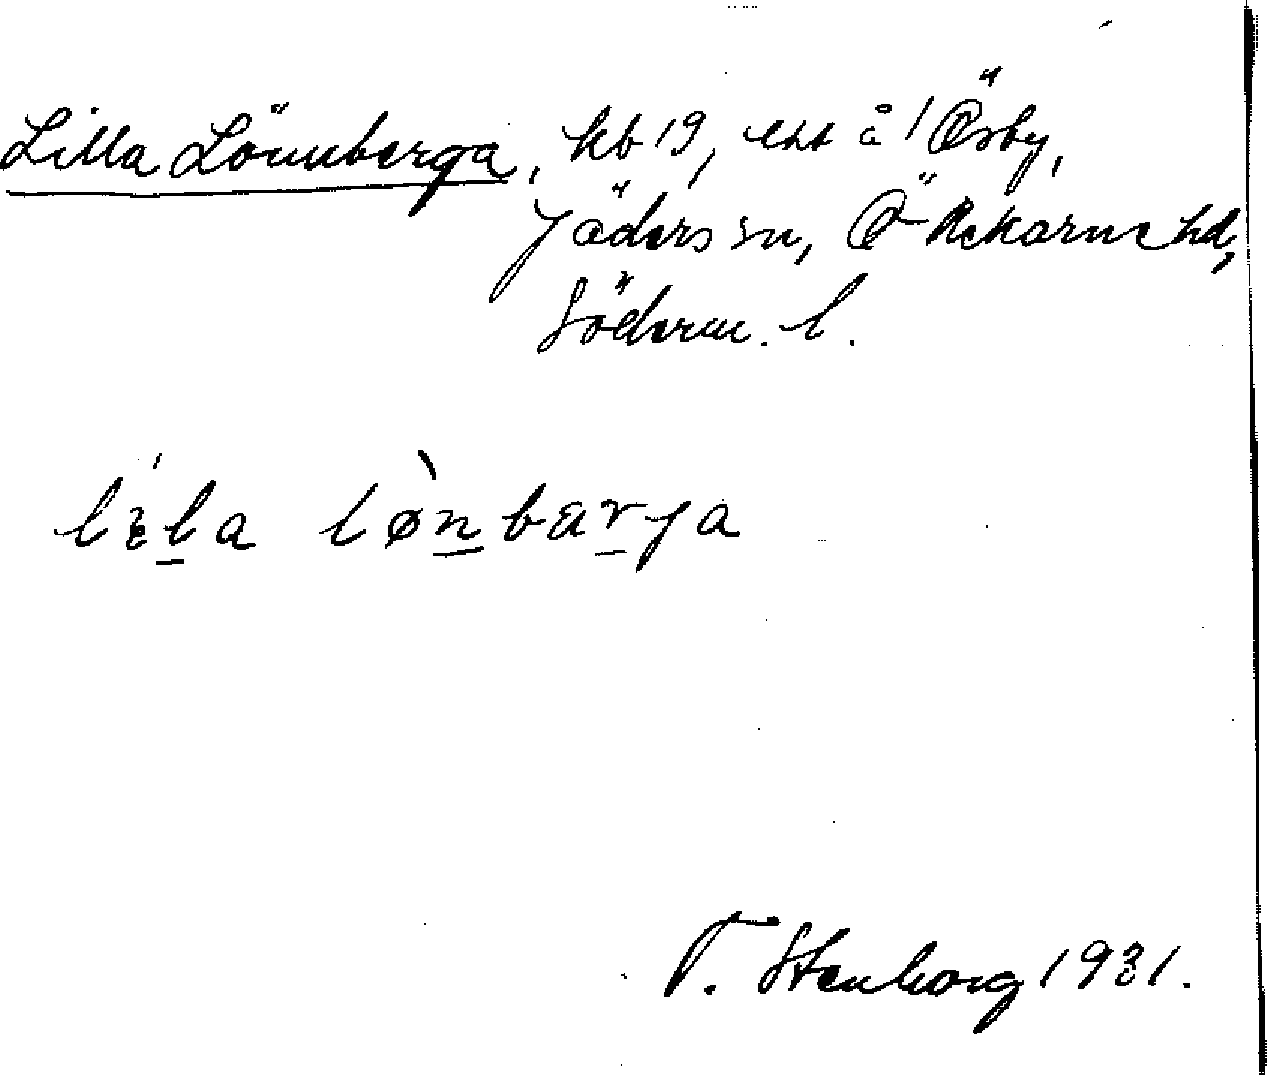 Lilla Lönnberga, kb 19, ext å 1 Örby,
Jäders sn, Ö Rekarne hd,
Söderm. l.
líla lø̀nbarja
T. Stenborg 1931.